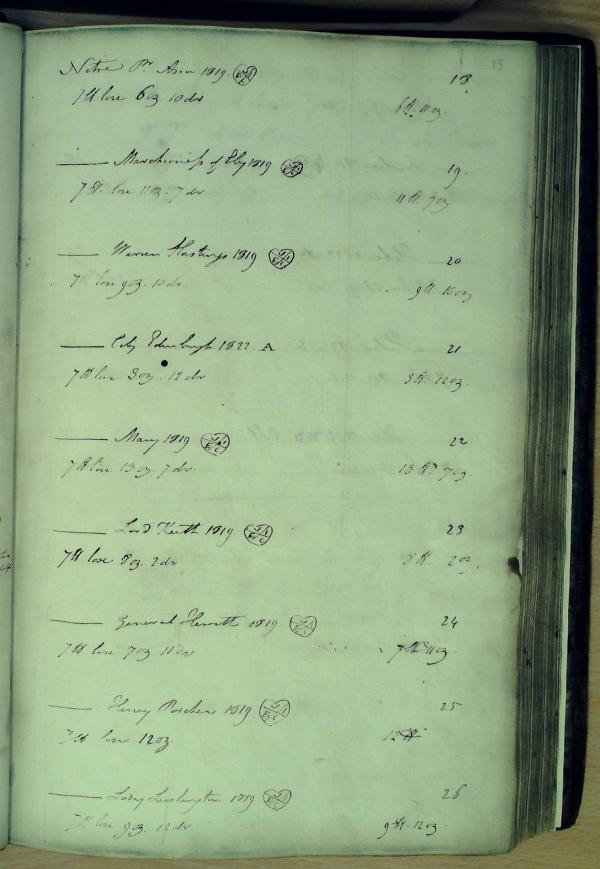 15
Nitre Pr. Asia 1819 18
7 lb lose 6 oz 10 dr 6 lb. 11 oz.
—— Marchioness of Ely 1819 19
7 lb. lose 11 oz. 7 dr 11 lb. 7 oz.
—— Warren Hastings 1819 20
7 lb lose 9 oz. 10 dr. 9 lb. 10 oz
—— City Edinburgh 1822. A 21
7 lb lose 3 oz. 12 dr 3 lb. 12 oz.
—— Mary 1819 22
7 lb lose 13 oz. 7 dr. 13 lb. 7 oz.
—— Lord Keith 1819. 23
7 lb lose 8 oz. 2 dr 8 lb. 2 oz.
—— General Hewitt 1819 24
7 lb lose 7 oz 11 dr 7 lb 11 oz.
—— Henry Porcher 1819 25
7 lb lose 12 oz. 12 lb
—— Lady Lushington 1819 26
7 lb lose 9 oz. 12 dr 9 lb. 12 oz.